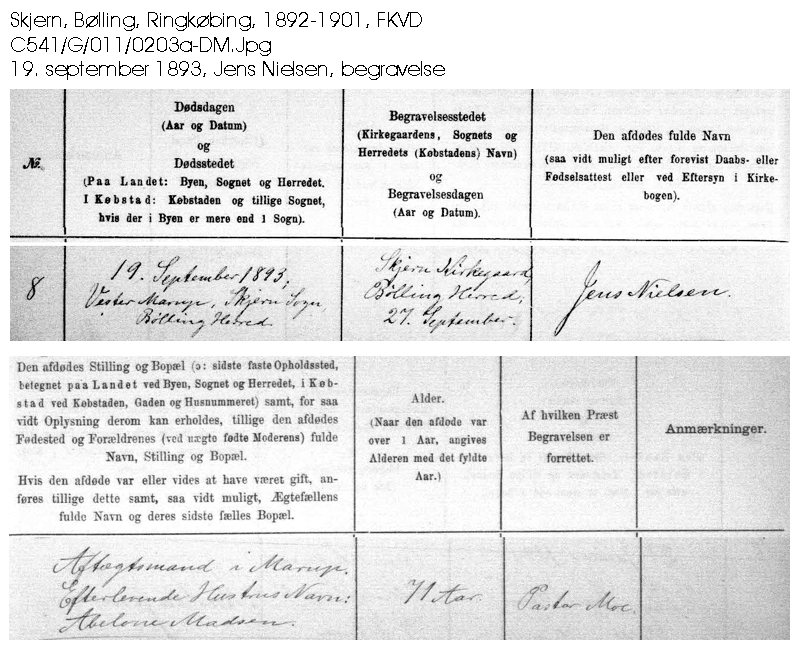 Skjern, Bølling, Ringkøbing, 1892-1901, FKVD
C541/G/011/0203a-DM.Jpg
19. september 1893, Jens Nielsen, begravelse
№.
Dødsdagen
(Aar og Datum)
og
Dødsstedet
(Paa Landet: Byen, Sognet og Herredet.
I Købstad: Købstaden og tillige Sognet,
hvis der i Byen er mere end 1 Sogn).
Begravelsesstedet
(Kirkegaardens, Sognets og
Herredets (Købstadens) Navn)
og
Begravelsesdagen
(Aar og Datum).
Den afdødes fulde Navn
(saa vidt muligt efter forevist Daabs- eller
Fødselsattest eller ved Eftersyn i Kirke-
bogen).
8
19. September 1893,
Vester Marup, Skjern Sogn
Bølling Herred.
Skjern Kirkegaard,
Bølling Herred,
27. September.
Jens Nielsen.
Den afdødes Stilling og Bopæl (ɔ: sidste faste Opholdssted,
betegnet paa Landet ved Byen, Sognet og Herredet, i Køb-
stad ved Købstaden, Gaden og Husnummeret) samt, for saa
vidt Oplysning derom kan erholdes, tillige den afdødes
Fødested og Forældrenes (ved uægte fødte Moderens) fulde
Navn, Stilling og Bopæl.
Hvis den afdøde var eller vides at have været gift, an-
føres tillige dette samt, saa vidt muligt, Ægtefællens
fulde Navn og deres sidste fælles Bopæl.
Alder.
(Naar den afdøde var
over 1 Aar, angives
Alderen med det fyldte
Aar.)
Af hvilken Præst
Begravelsen er
forrettet.
Anmærkninger.
Aftægtsmand i Marup.
Efterlevende Hustrus Navn:
Abelone Madsen.
71 Aar.
Pastor Moe.